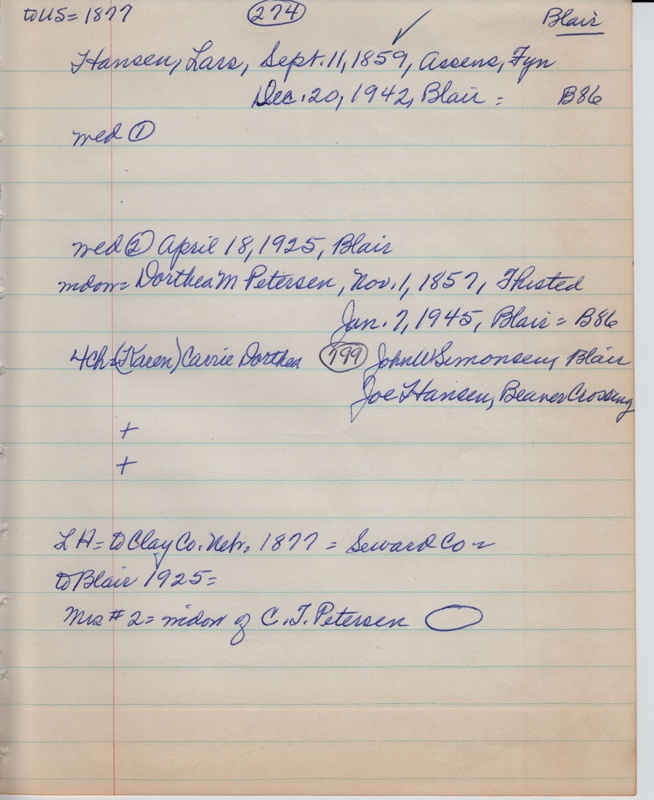 to US = 1877 (274) Blair
Hansen, Lars, Sept. 11, 1859, Assens, Fyn
Dec. 20, 1942, Blair = B86
wed ①
wed ② April 18, 1925, Blair
widow = Dorthea M Petersen, Nov. 1, 1857, Thisted
Jan. 7, 1945, Blair = B86
4ch = (Karen) Carrie Dorthea (799) John W Simonsen, Blair
Joe Hansen, Beaver Crossing
+
+
LH = to Clay Co. Nebr. 1877 = Seward Co =
to Blair 1925 =
Mrs # 2 = widow of C. T. Petersen